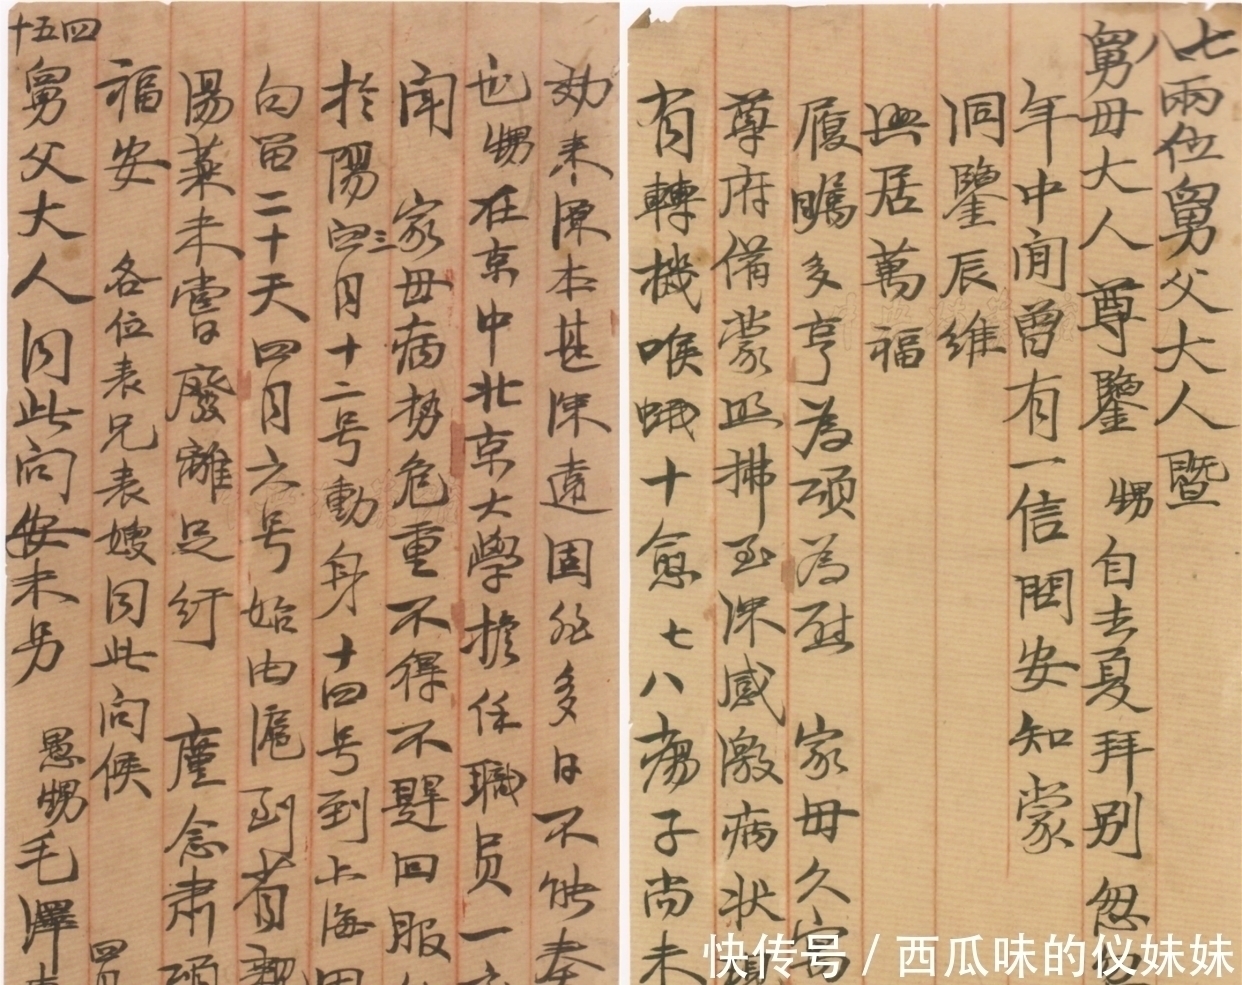 七八兩位舅父大人暨
舅母大人尊鑒 甥自去夏拜別忽
年中間曾有一信問安知蒙
洞鑒辰維
興居萬福
履瞩多亨為頌為慰 家母久寓
尊府備蒙照拂至深感激病狀
有轉機喉蛾十愈七八瘍子尚未
効来源本甚深遠固非多日不能奏
也甥在京中北京大學擔任職員一
聞 家母病勢危重不得不趕回服
於陽曆三月十二号動身十四号到上海因
勾留二十天四月六号始由滬到省親
湯藥未嘗廢離足紓 廑念肅頌
福安 各位表兄表嫂同此問候
四五十
舅父大人同此問安未另
愚甥毛澤
快传号 / 西瓜味的仪妹妹